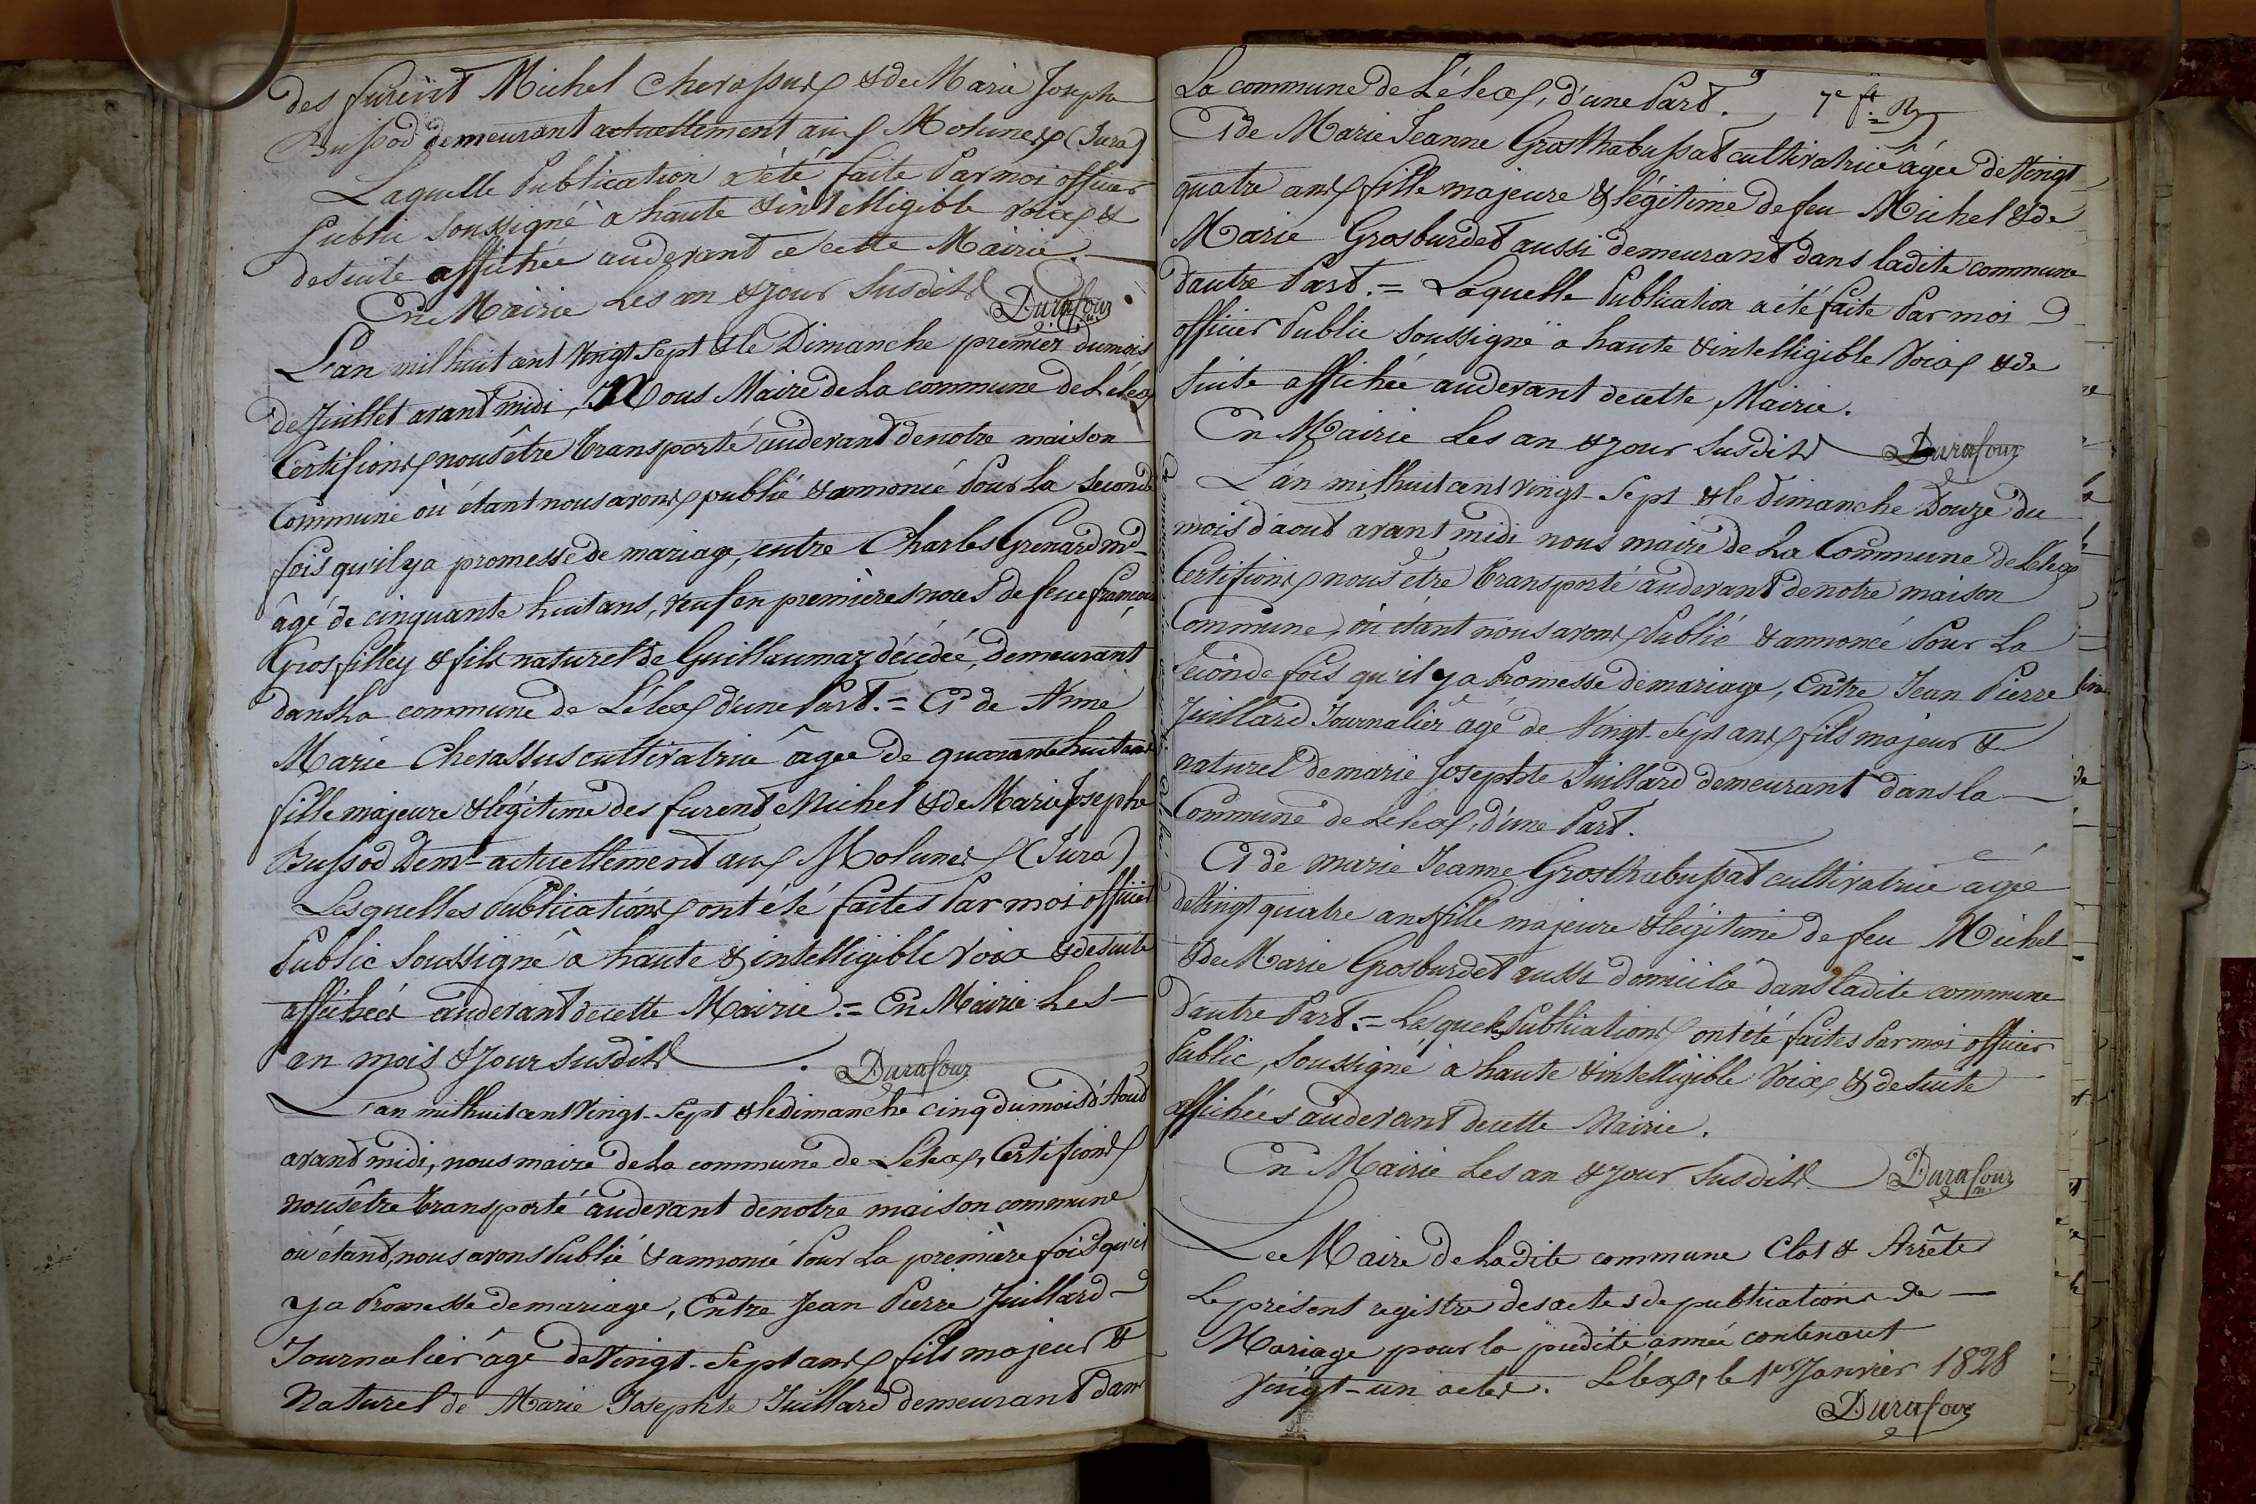 des furent Michel Chevassus & de Marie Josephe
Bussod demeurant actuellement aux Molunes (Jura)
Laquelle Publication a été faite Par moi officier
Public soussigné à haute & intelligible voix &
de suite affichée au devant de cette Mairie.
En Mairie Les an & jour susdits Durafour
L'an mil huit cent vingt sept & le Dimanche premier du mois
de Juillet avant midi, Nous Maire de La commune de Lélex
Certifions nous être transporté au devant de notre maison
Commune où étant nous avons publié & annoncé Pour La seconde
fois qu'il y a promesse de mariage, entre Charles Grenard md
âgé de cinquante huit ans, veuf en premières noces de feue Françoise
Grosfilley & fils naturel de Guillaumaz décédée, Demeurant
dans La commune de Lélex d'une Part. = Et de Anne
Marie Chevassus cultivatrice âgée de quarante huit ans
fille majeure & légitime des furent Michel & de Marie Josephe
Bussod Demt actuellement aux Molunes (Jura)
Lesquelles Publications ont été faites Par moi officier
Public soussigné à haute & intelligible voix & de suite
affichées au devant de cette Mairie. = En Mairie Les
an mois & jour susdits. Durafour
L'an mil huit cent vingt-sept & le dimanche cinq du mois d'Aout
avant midi, nous maire de La commune de Lélex, Certifions
nous être transporté au devant de notre maison commune
où étant, nous avons Publié & annoncé Pour La première fois qu'il
y a Promesse de mariage, Entre Jean Pierre Juillard
Journalier âgé de Vingt-sept ans fils majeur &
Naturel de Marie Josephte Juillard demeurant dans
La commune de Lélex, d'une Part. 7e ft
Et de Marie Jeanne Grosthabussat cultivatrice âgée de Vingt
quatre ans fille majeure & légitime de feu Michel & de
Marie Grosburdet aussi demeurant dans ladite commune
d'autre Part. = Laquelle Publication a été faite Par moi
officier Public soussigné à haute & intelligible Voix & de
suite affichée au devant de cette Mairie.
En Mairie Les an & jour susdits Durafour
L'an mil huit cent vingt-sept & le dimanche Douze du
mois d'aout avant midi nous maire de La Commune de Lélex
Certifions nous être transporté au devant de notre maison
Commune, où étant nous avons Publié & annoncé Pour La
seconde fois qu'il y a Promesse de mariage, Entre Jean Pierre
Juillard Journalier âgé de Vingt-sept ans fils majeur &
naturel de marie Josephte Juillard demeurant dans la
Commune de Lélex, d'une Part.
Et de marie Jeanne Grosthabussat cultivatrice agée
de Vingt quatre ans fille majeure & légitime de feu Michel
& de Marie Grosburdet aussi domicilié dans ladite commune
d'autre Part. = Lesquels Publications ont été faites Par moi officier
Public, soussigné à haute & intelligible Voix & de suite
affichées au devant de cette Mairie.
En Mairie Les an & jour susdits Durafour
Le Maire de Ladite commune Clos & Arrête
Le présent registre des actes de publications de
Mariage pour la predite année contenant
Vingt-un actes. Lélex, le 1er Janvier 1828
Durafour